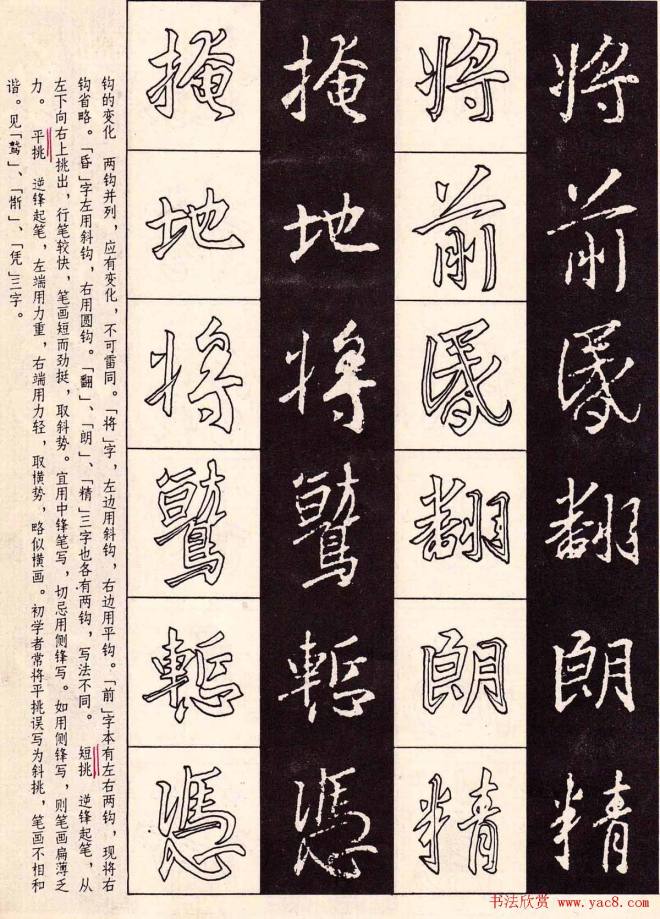 将前昬翻朗精
将前昬翻朗精
掩地将鷲慙憑
掩地将鷲慙憑
钩的变化　两钩并列，应有变化，不可雷同。「将」字，左边用斜钩，右边用平钩。「前」字本有左右两钩，现将右
钩省略。「昏」字左用斜钩，右用圆钩。「翻」、「朗」、「精」三字也各有两钩，写法不同。　短挑　逆锋起笔，从
左下向右上挑出，行笔较快，笔画短而劲挺，取斜势。宜用中锋笔写，切忌用侧锋写。如用侧锋写，则笔画扁薄乏
力。　平挑　逆锋起笔，左端用力重，右端用力轻，取横势，略似横画。初学者常将平挑误写为斜挑，笔画不相和
谐。见「鹫」、「惭」、「凭」三字。
书法欣赏 www.yac8.com